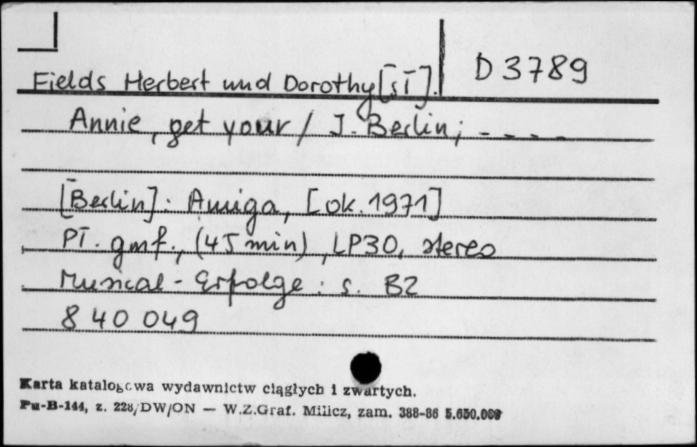 D 3789
Fields Herbert und Dorothy [sł].
Annie, get your / J. Berlin; - - - -
[Berlin] : Amiga, [ok. 1971]
Pł. gmf., (45 min), LP30, stereo
Musical - Erfolge : s. B2
840 049
Karta katalogowa wydawnictw ciągłych i zwartych.
Pu-B-144, z. 228/DW/ON — W.Z.Graf. Milicz, zam. 388-86 5.650.000